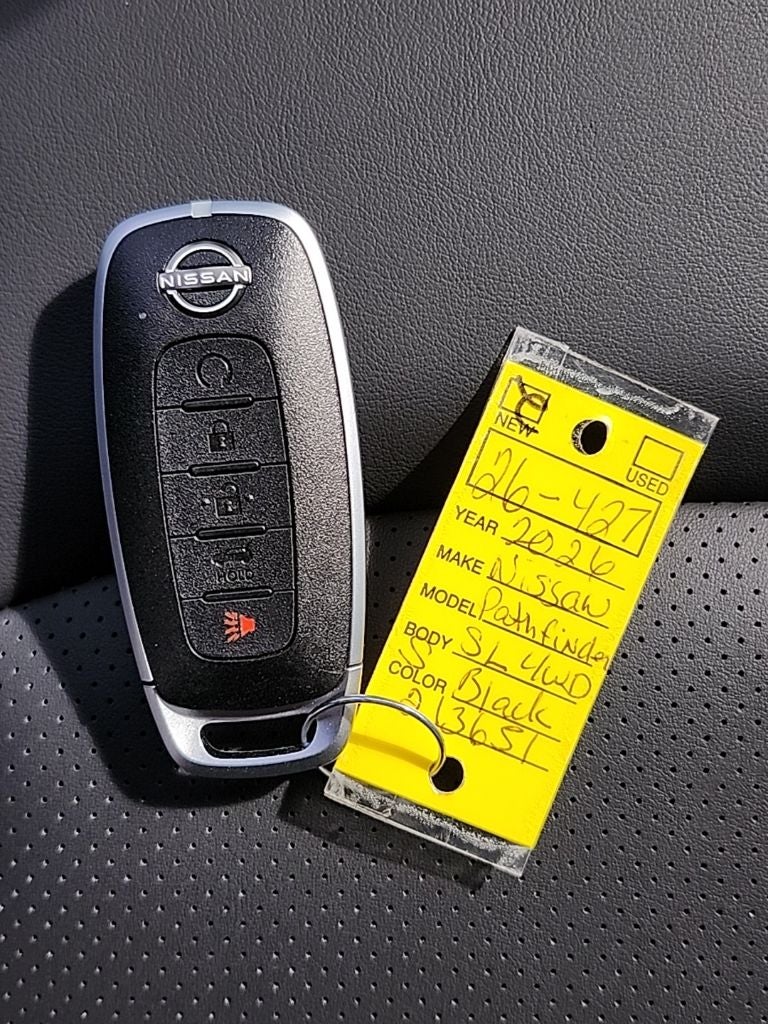 NISSAN
HOLD
NEW
USED
26-427
YEAR 2026
MAKE Nissan
MODEL Pathfinder
BODY SL 4WD
COLOR Black